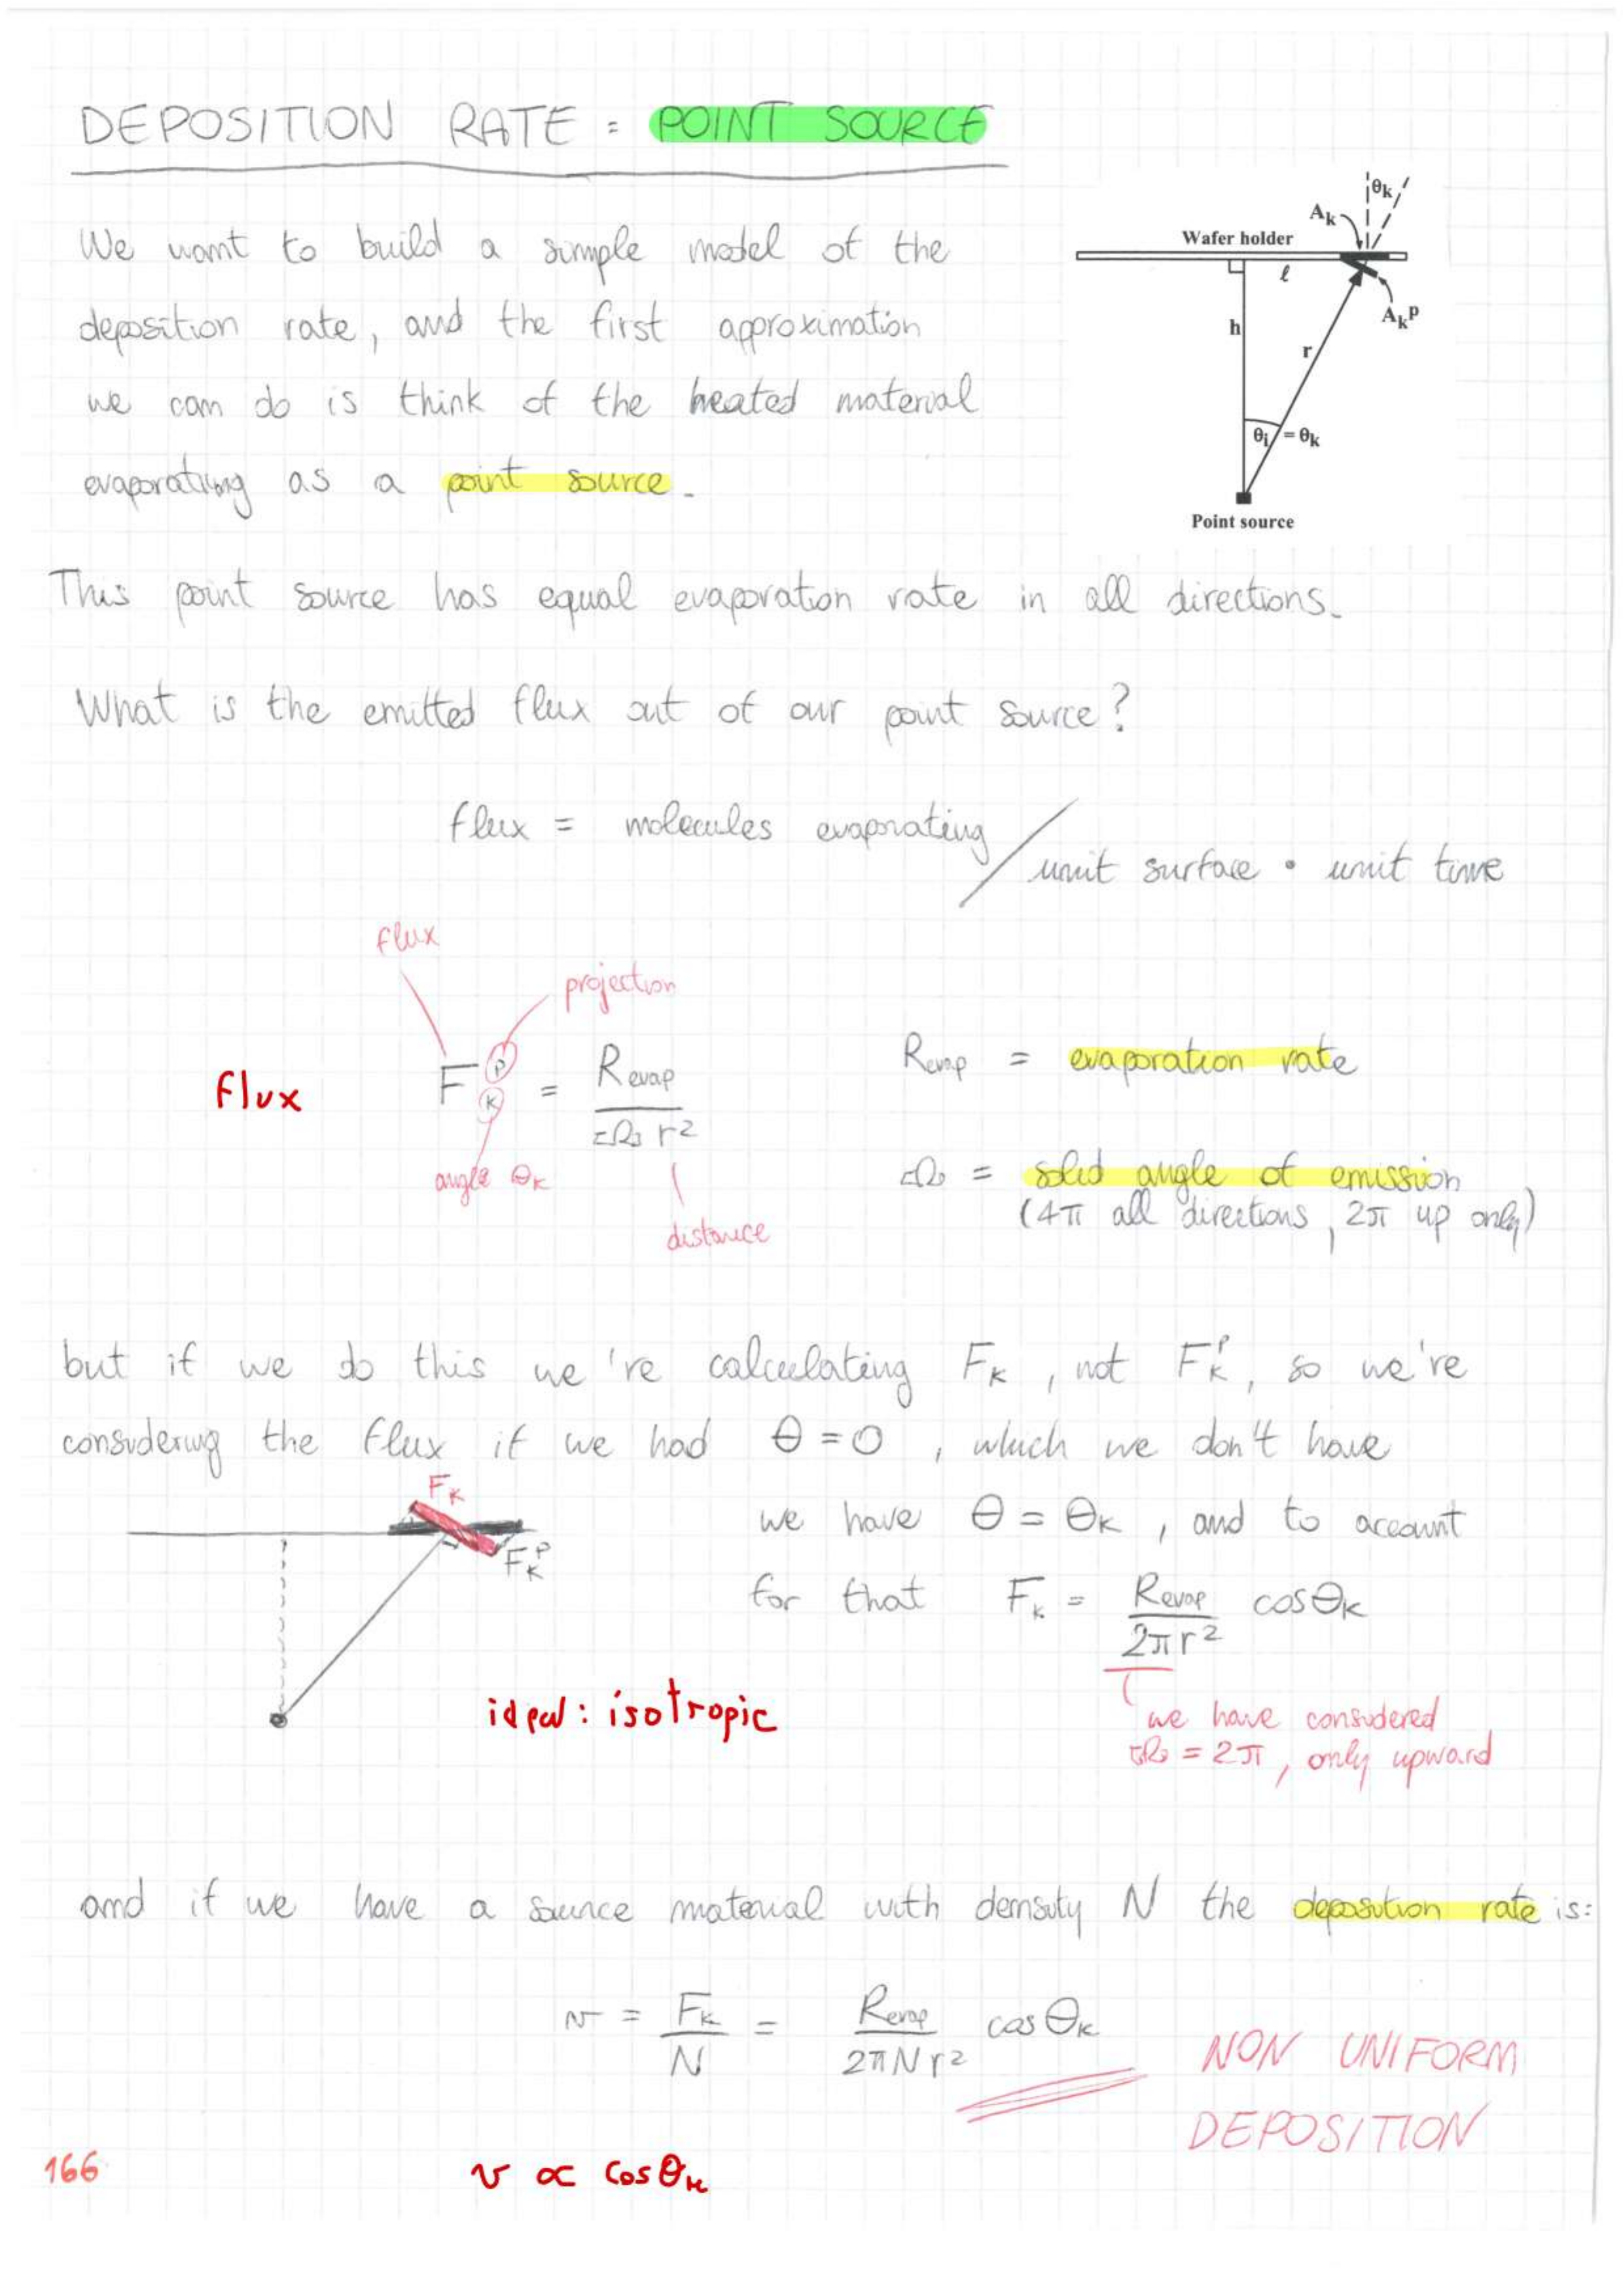 DEPOSITION RATE = POINT SOURCE
We want to build a simple model of the
deposition rate, and the first approximation
we can do is think of the heated material
evaporating as a point source.
θk
Ak
Wafer holder
ℓ
AkP
h
r
θi = θk
Point source
This point source has equal evaporation rate in all directions.
What is the emitted flux out of our point source?
flux = molecules evaporating / unit surface • unit time
flux
projection
flux F^P_K = Revap / Ω r²
angle θK
distance
Revap = evaporation rate
Ω = solid angle of emission
(4π all directions, 2π up only)
but if we do this we're calculating FK, not F^P_K, so we're
considering the flux if we had θ = 0, which we don't have
FK
F^P_K
we have θ = θK, and to account
for that FK = Revap / 2πr² cosθK
ideal: isotropic
we have considered
Ω = 2π, only upward
and if we have a source material with density N the deposition rate is:
v = FK / N = Revap / 2πNr² cosθK
NON UNIFORM
DEPOSITION
166
v ∝ cosθK